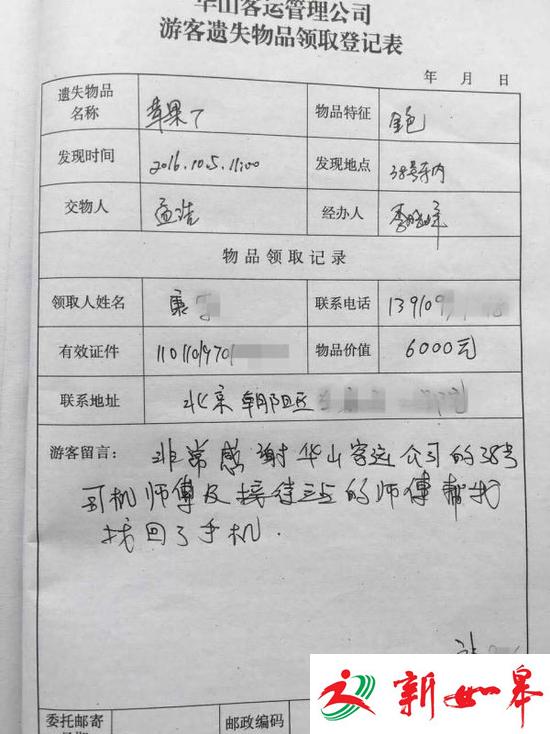 华山客运管理公司
游客遗失物品领取登记表
年 月 日
遗失物品名称 苹果7 物品特征 金色
发现时间 2016.10.5.11:00 发现地点 38号车内
交物人 孟浩 经办人 李晓峰
物品领取记录
领取人姓名 康 联系电话 13910
有效证件 11011019701 物品价值 6000元
联系地址 北京朝阳区
游客留言： 非常感谢华山客运公司的38号
司机师傅及接待三点的师傅帮我
找回了手机.
委托邮寄 邮政编码
新如皋